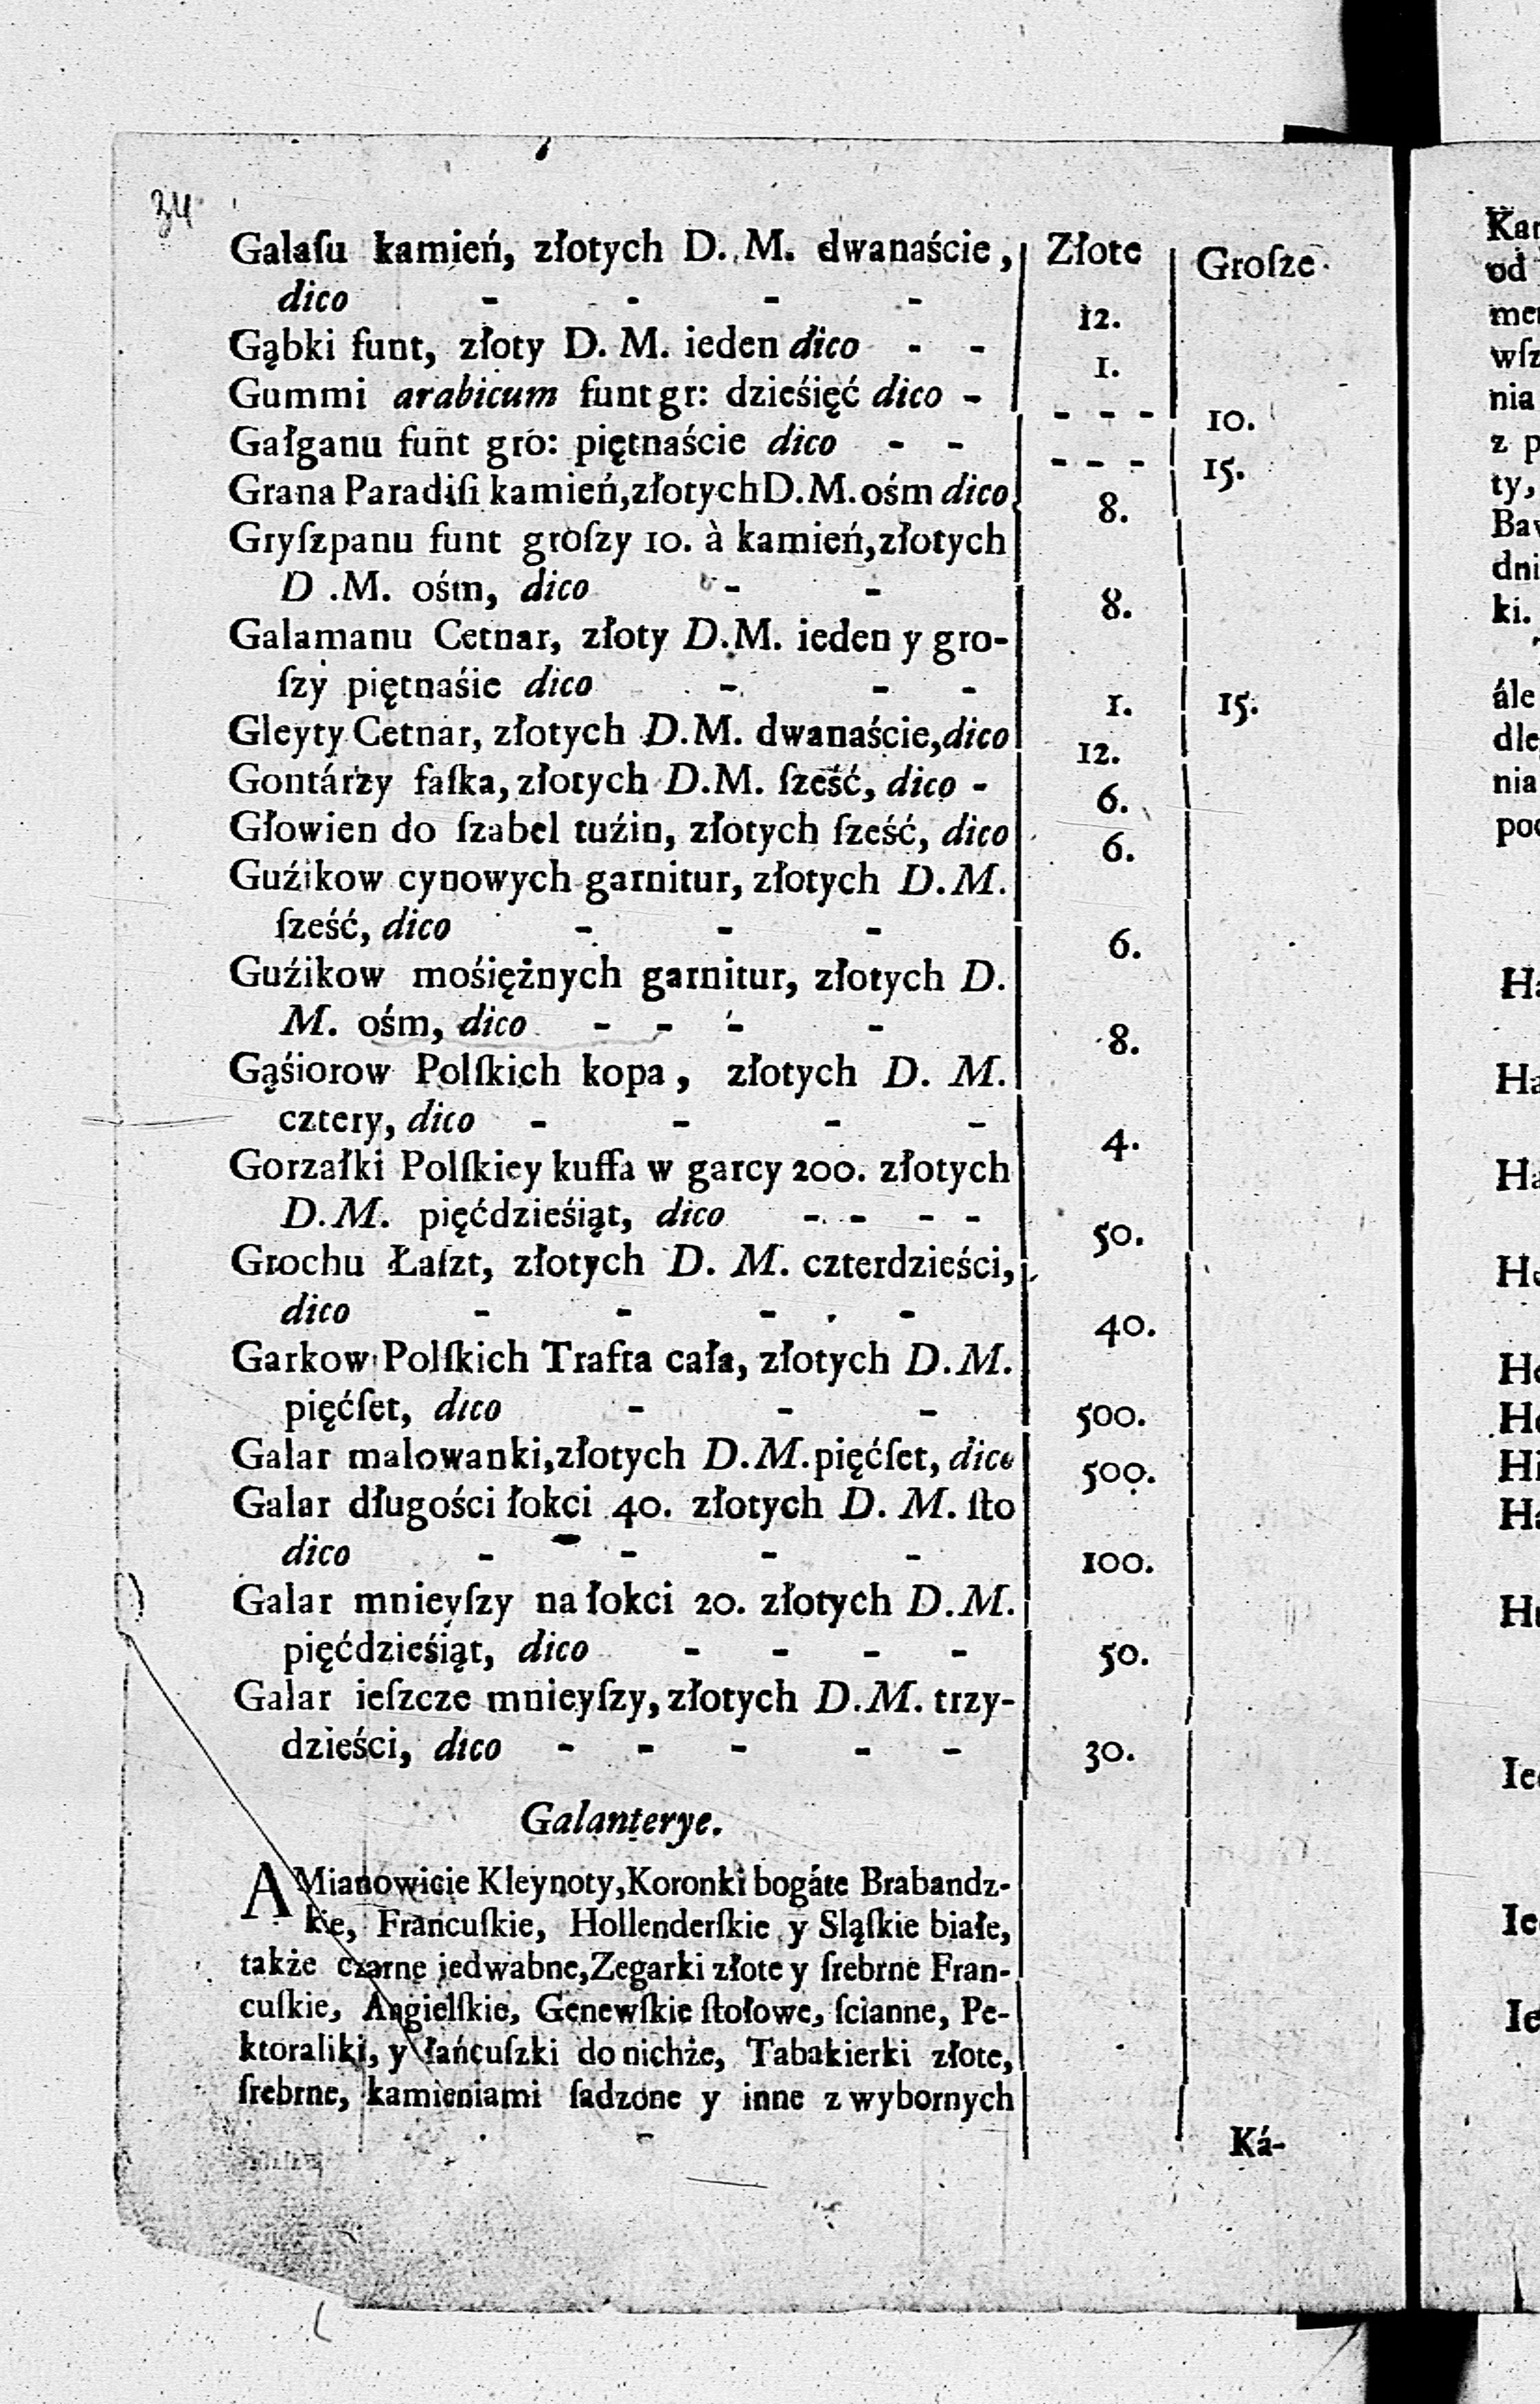 34
Galaſu kamień, złotych D. M. dwanaście, | Złote | Groſze
dico - - - - 12.
Gąbki funt, złoty D. M. ieden dico - - 1.
Gummi arabicum funt gr: dzieśięć dico - - - - 10.
Gałganu funt gro: piętnaście dico - - - - - 15.
Grana Paradiſi kamień, złotych D.M. ośm dico 8.
Gryſzpanu funt groſzy 10. à kamień, złotych
D .M. ośm, dico - - 8.
Galamanu Cetnar, złoty D.M. ieden y gro-
ſzy piętnaśie dico - - - 1. 15.
Gleyty Cetnar, złotych D.M. dwanaście, dico 12.
Gontárzy faſka, złotych D.M. ſześć, dico - 6.
Głowien do ſzabel tuźin, złotych ſześć, dico 6.
Guźikow cynowych garnitur, złotych D.M.
ſześć, dico - - - 6.
Guźikow mośiężnych garnitur, złotych D.
M. ośm, dico - - - - 8.
Gąśiorow Polſkich kopa, złotych D. M.
cztery, dico - - - - 4.
Gorzałki Polſkiey kuffa w garcy 200. złotych
D.M. pięćdzieśiąt, dico - - - - 50.
Grochu Łaſzt, złotych D. M. czterdzieści,
dico - - - - 40.
Garkow Polſkich Trafta cała, złotych D.M.
pięćſet, dico - - - 500.
Galar malowanki, złotych D.M. pięćſet, dico 500.
Galar długości łokci 40. złotych D. M. ſto
dico - - - - 100.
Galar mnieyſzy na łokci 20. złotych D.M.
pięćdzieśiąt, dico - - - - 50.
Galar ieſzcze mnieyſzy, złotych D.M. trzy-
dzieści, dico - - - - - 30.
Galanterye.
A Mianowicie Kleynoty, Koronki bogáte Brabandz-
kie, Francuſkie, Hollenderſkie y Sląſkie białe,
także czarne jedwabne, Zegarki złote y ſrebrne Fran-
cuſkie, Angielſkie, Genewſkie ſtołowe, ſcianne, Pe-
ktoraliki, y łańcuſzki do nichże, Tabakierki złote,
ſrebrne, kamieniami ſadzone y inne z wybornych
Ká-
od
wſz
nia
z p
ty,
dni
ki.
ále
nia